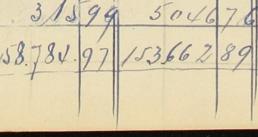 315 99 5046 76
158.784.97 153662 89